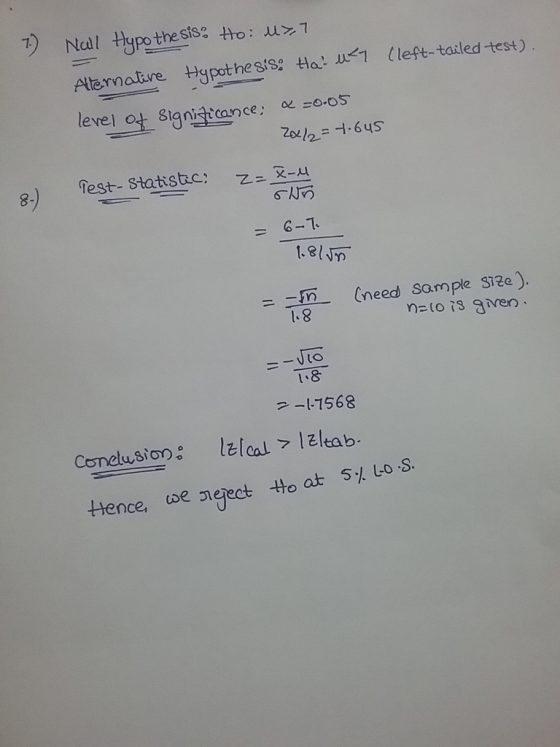 7.) Null Hypothesis: Ho: μ ≥ 7
Alternative Hypothesis: Ha: μ < 7 (left-tailed test).
level of Significance: α = 0.05
Zα/2 = -1.645
8.) Test-statistic: Z = x̄-μ / σ/√n
= 6-7. / 1.8/√n
= -√n / 1.8 (need sample size).
n=10 is given.
= -√10 / 1.8
= -1.7568
Conclusion: |Z|cal > |Z|tab.
Hence, we reject Ho at 5% L.O.S.